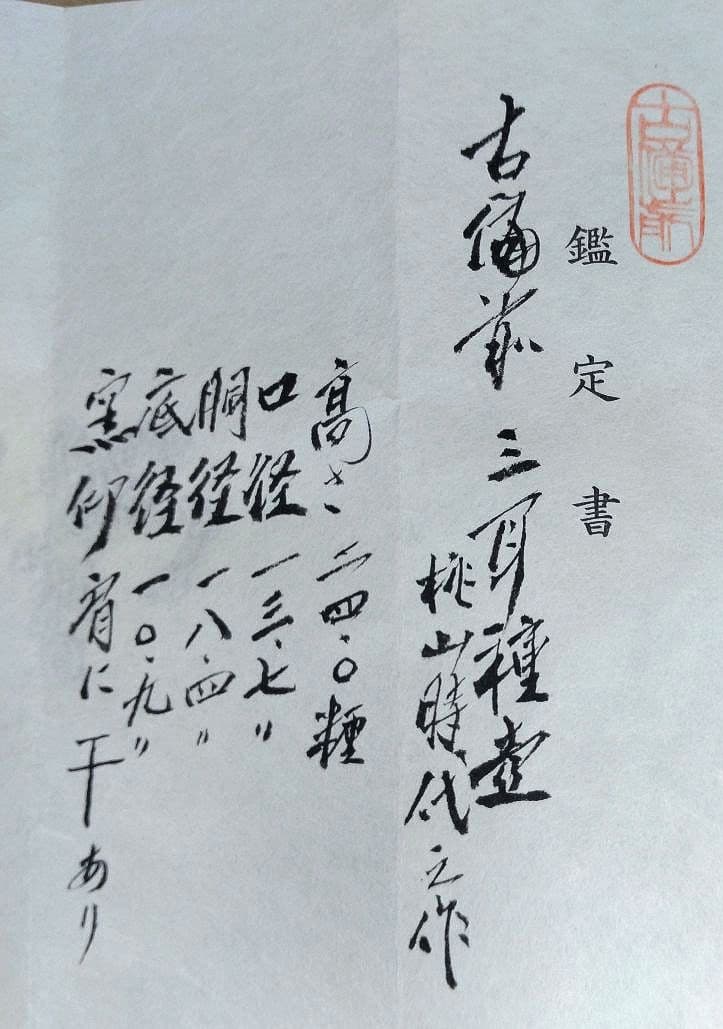 古備前
鑑定書
古備前 三耳種壺
桃山時代之作
高さ 二四・〇糎
口径 一三・七〃
胴径 一八・四〃
底径 一〇・九〃
窯印 肩に干あり